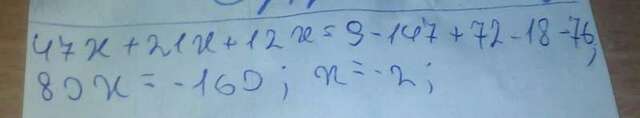 47x + 21x + 12x = 9 - 147 + 72 - 18 - 76;
80x = -160; x = -2;